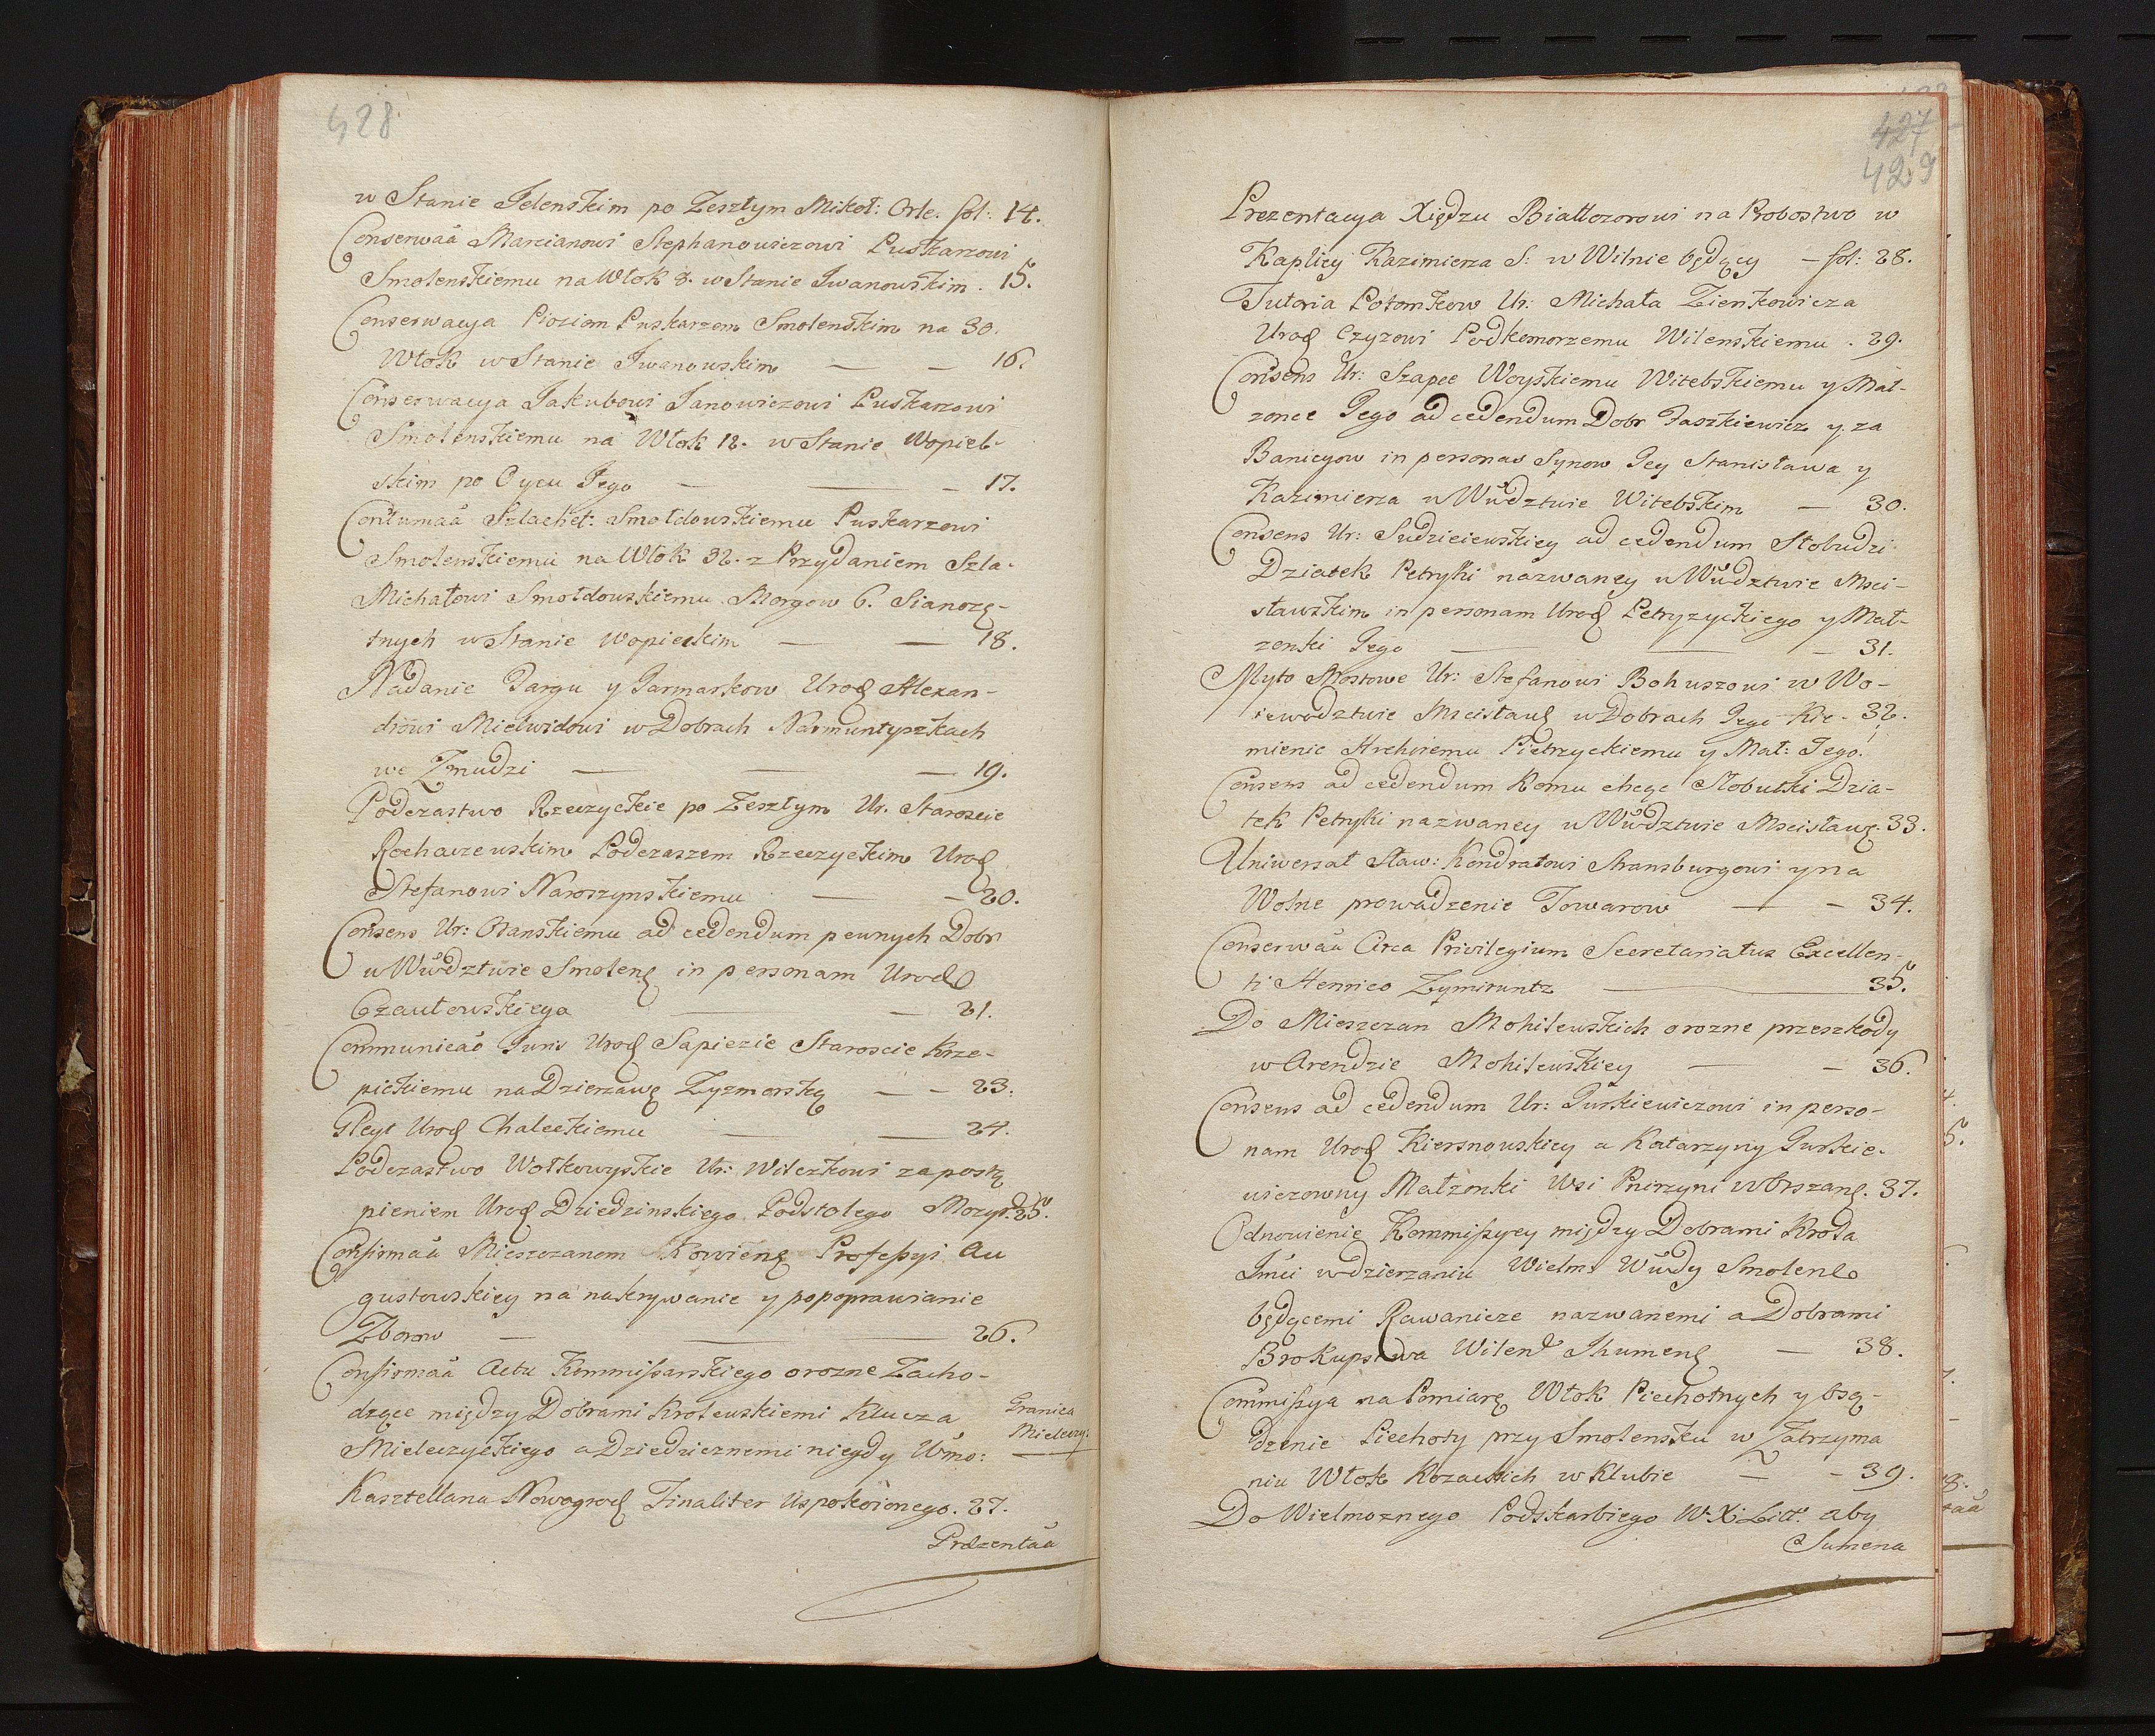 428
w Stanie Jelenskim po Zeszłym Mikoł: Orle. fol: 14.
Conserwaã Marcianowi Stephanowiczowi Puskarzowi
Smolenskiemu na Włok 8. w Stanie Iwanowskim. 15.
Conserwacya Piociom Puskarzom Smolenskim na 30.
Włok w Stanie Iwanowskim — — 16.
Conserwacya Jakubowi Janowiczowi Puskarzowi
Smolenskiemu na Włok 12. w Stanie Wopiel-
skim po Oycu Jego — — — 17.
Szlachet: Smołdowskiemu Puskarzowi
Smolenskiemu na Włok 32. z Przydaniem Szla.
Michałowi Smołdowskiemu Morgow 6. Sianozę-
tnych w Stanie — — 18.
Nadanie Targu y Jarmarkow Urod Alexan-
drowi Mielwidowi w Dobrach Narmuntyszkach
we Zmudzi — — — 19.
Podczastwo Rzeczyckie po Zeszłym Ur. Staroscie
Rochaczewskim Podczaszem Rzeczyckim Urod
Stefanowi Naroszynskiemu — — 20.
Consens Ur: ad cedendum pewnych Dobr
w Wwdztwie Smolen in personam Urod
— — 21.
Communicaõ Juris Urod Sapiezie Staroscie Krze-
pickiemu na Dzierzawę Zyzmorską — — 23.
Gleyt Urod Chaleckiemu — — 24.
Podczastwo Wołkowyskie Ur: Wilczkowi za postą
pieniem Urod Dziedzinskiego Podstolego Mozyr. 25.
Confirmaã Mieszczanom Kowien Professyi Au
gustowskiey na nakrywanie y popoprawianie
Zborow — — — 26.
Confirmaã Actu Kommissarskiego o rozne Zacho-
dzące między Dobrami Krolewskiemi Klucza
Granica
Mieleczy:
Mieleczyckiego a Dziedzicznemi niegdy Wmo: —
Kasztellana Nowogrod Finaliter Uspokoionego. 27.
Præzentaã
427
429
Prezentacya Xiędzu Białłozorowi na Probostwo w
Kaplicy Kazimierza S: w Wilnie będący — fol: 28.
Tutoria Potomkow Ur: Michała Zienkowicza
Urod Czyzowi Podkomorzemu Wilenskiemu . 29.
Consens Ur: Szapce Woyskiemu Witebskiemu y Mał-
zonce Jego ad cedendum Dobr Jaszkiewicz y za
Banicyow in personas Synow Jey Stanisława y
Kazimierza w Wwdztwie Witebskim — 30.
Consens Ur: Sudziciewskiey ad cedendum Słobudzi
Dziatek Petryki nazwaney w Wwdztwie Msci-
sławskim in personam Urod Petryzyckiego y Mał-
zonki Jego — — — 31.
Myto Mostowe Ur: Stefanowi Bohuszowi w Wo-
iewodztwie Mscisław w Dobrach Jego Kie- 32.
mienic Pietrzyckiemu y Mał: Jego.
Consens ad cedendum Komu chcąc Słobutki Dzia-
tek Petryki nazwaney w Wwdztwie Mscisław. 33.
Uniwersał Sław: Kondratowi Stransburgowi y na
Wolne prowadzenie Towarow — — 34.
Conserwaã Circa Privilegium Secretariatus Excellen-
ti Henrico Zymiruntz — 35.
Do Mieszczan Mohilewskich o rozne przeszkody
w Arendzie Mohilewskiey — — 36.
Consens ad cedendum Ur: Jurkiewiczowi in perso-
nam Urod Kiersnowskiey a Katarzyny Jurkie-
wiczowny Małzonki Wsi . 37.
Odnowienie Kommissyey między Dobrami Krola
Jmci w dzierzaniu Wielm: Wwdy Smolen
będącemi Rawanicze nazwanemi a Dobrami
Biskupstwa Wilen Jhumen — 38.
Commissya na Pomiarę Włok Piechotnych y Osą-
dzenie Piechoty przy Smolensku w Zatrzyma
niu Włok Kozackich w Klubie — — 39.
Do Wielmoznego Podskarbiego W.X. Litt. aby
Sumena